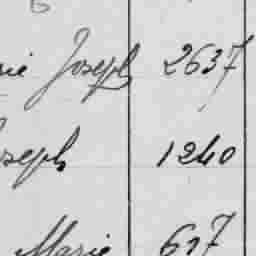 rie Joseph 2637
oseph 1240
Marie 617